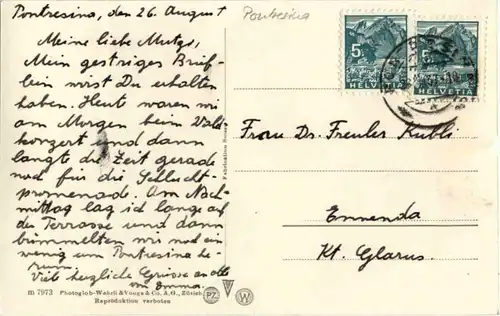 Pontresina, den 26. August
Pontresina
Meine liebe Mutzi,
Mein gestriges Brief-
lein wirst Du erhalten
haben. Heute waren wir
am Morgen beim Wald-
konzert und dann
langte die Zeit gerade
noch für die Schlucht-
promenade. Am Nach-
mittag lag ich lange auf
der Terrasse und dann
bummelten wir noch ein
wenig um Pontresina he-
rum.
Viel herzliche Grüsse an alle
von Emma.
m 7973 Photoglob-Wehrli & Vouga & Co. A.G., Zürich
Reproduktion verboten
PZ V W
5
HELVETIA
5
HELVETIA
Frau Dr. Freuler Kubli
Ennenda
Kt. Glarus.